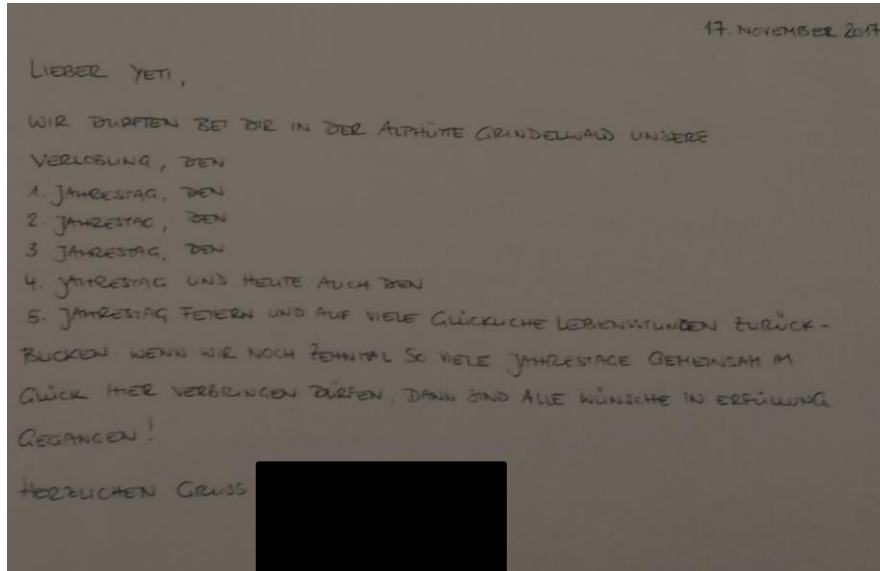 17. NOVEMBER 2017
LIEBER YETI,
WIR DURFTEN BEI DIR IN DER ALPHÜTTE GRINDELWALD UNSERE
VERLOBUNG, DEN
1. JAHRESTAG, DEN
2. JAHRESTAG, DEN
3 JAHRESTAG, DEN
4. JAHRESTAG UND HEUTE AUCH DEN
5. JAHRESTAG FEIERN UND AUF VIELE GLÜCKLICHE LEBENSSTUNDEN ZURÜCK-
BLICKEN. WENN WIR NOCH ZEHNMAL SO VIELE JAHRESTAGE GEMEINSAM IM
GLÜCK HIER VERBRINGEN DÜRFEN, DANN SIND ALLE WÜNSCHE IN ERFÜLLUNG
GEGANGEN!
HERZLICHEN GRUSS